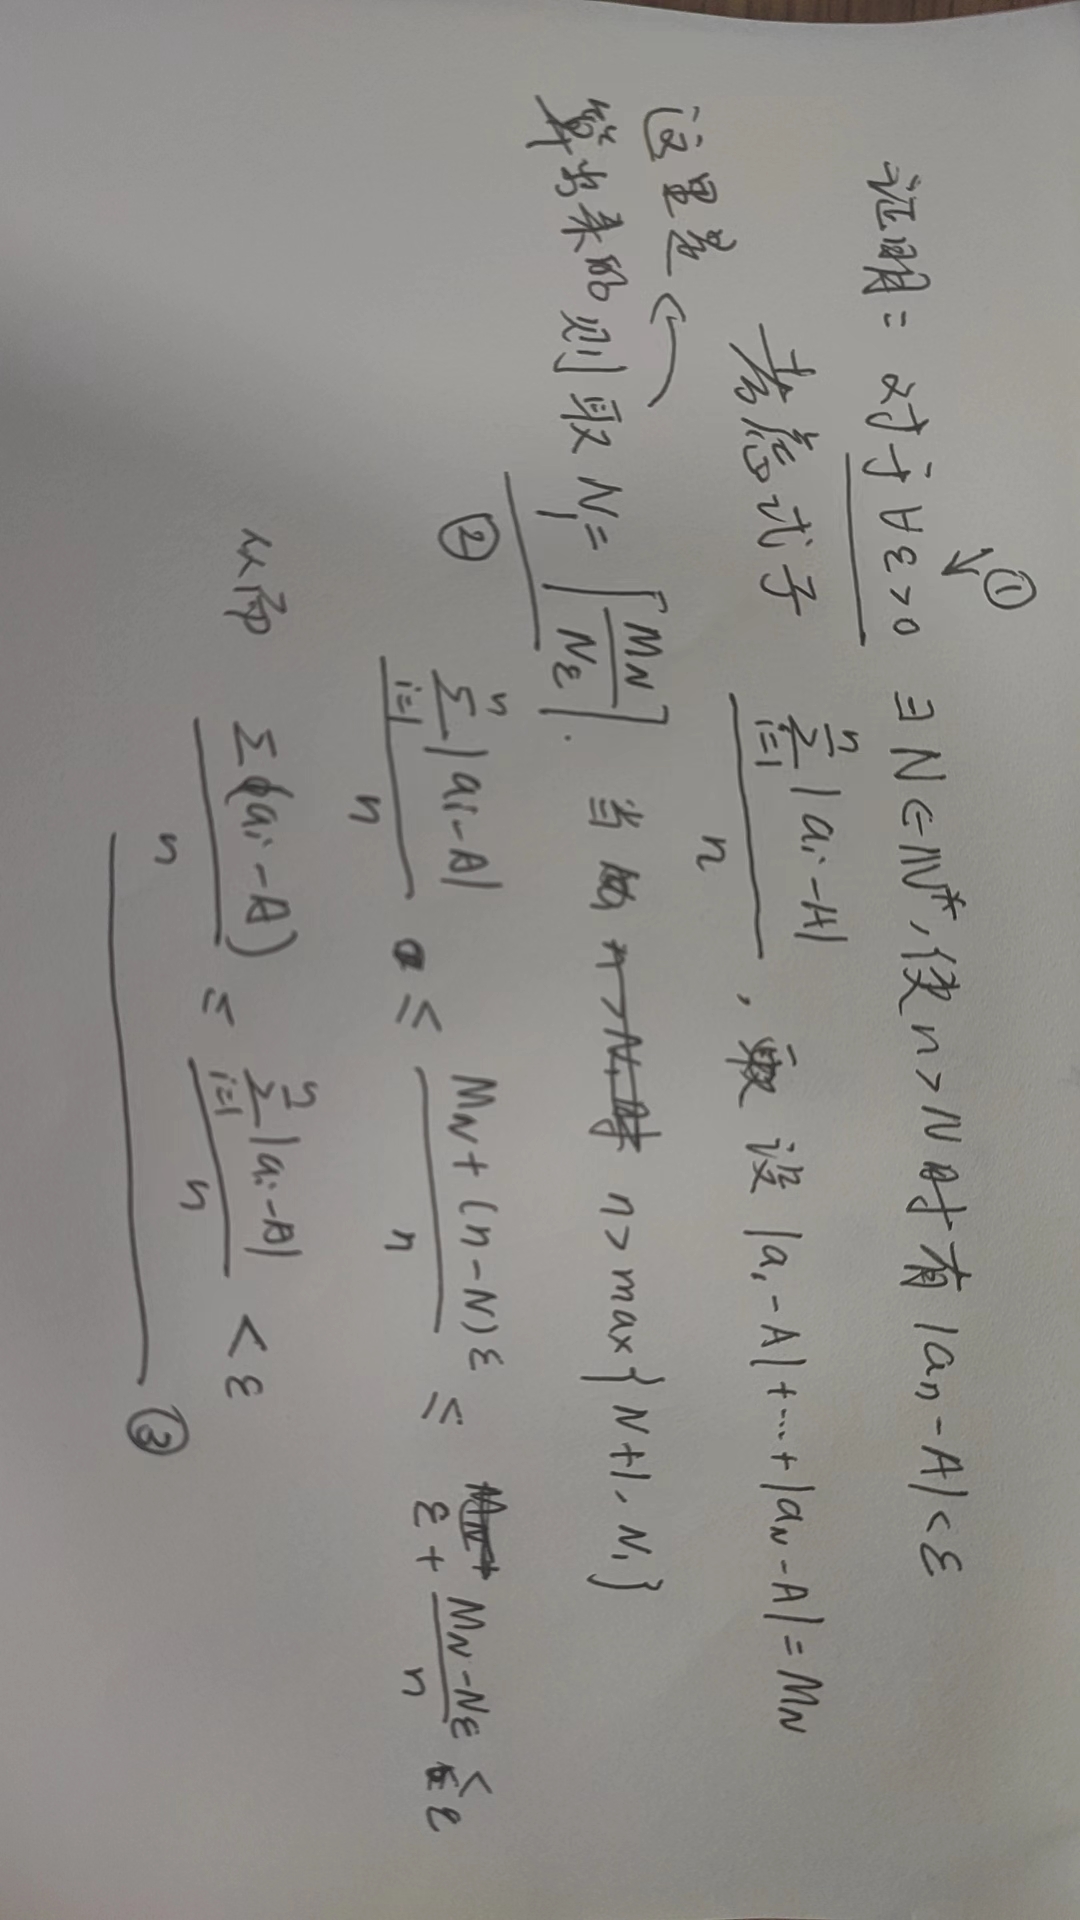 ①
证明: 对于∀ε>0 ∃N∈N*,使n>N时有|aₙ-A|<ε
考虑式子 \frac{\sum_{i=1}^{n}|aᵢ-A|}{n}, 设|a₁-A|+…+|a_N-A|=M_N
这里是
算出来的 则取 N₁=⌈\frac{M_N}{Nε}⌉. 当 n>max{N+1, N₁}
②
\frac{\sum_{i=1}^{n}|aᵢ-A|}{n} ≤ \frac{M_N+(n-N)ε}{n} ≤ ε+\frac{M_N-Nε}{n} < ε
从而 \frac{Σ(aᵢ-A)}{n} ≤ \frac{\sum_{i=1}^{n}|aᵢ-A|}{n} < ε
③